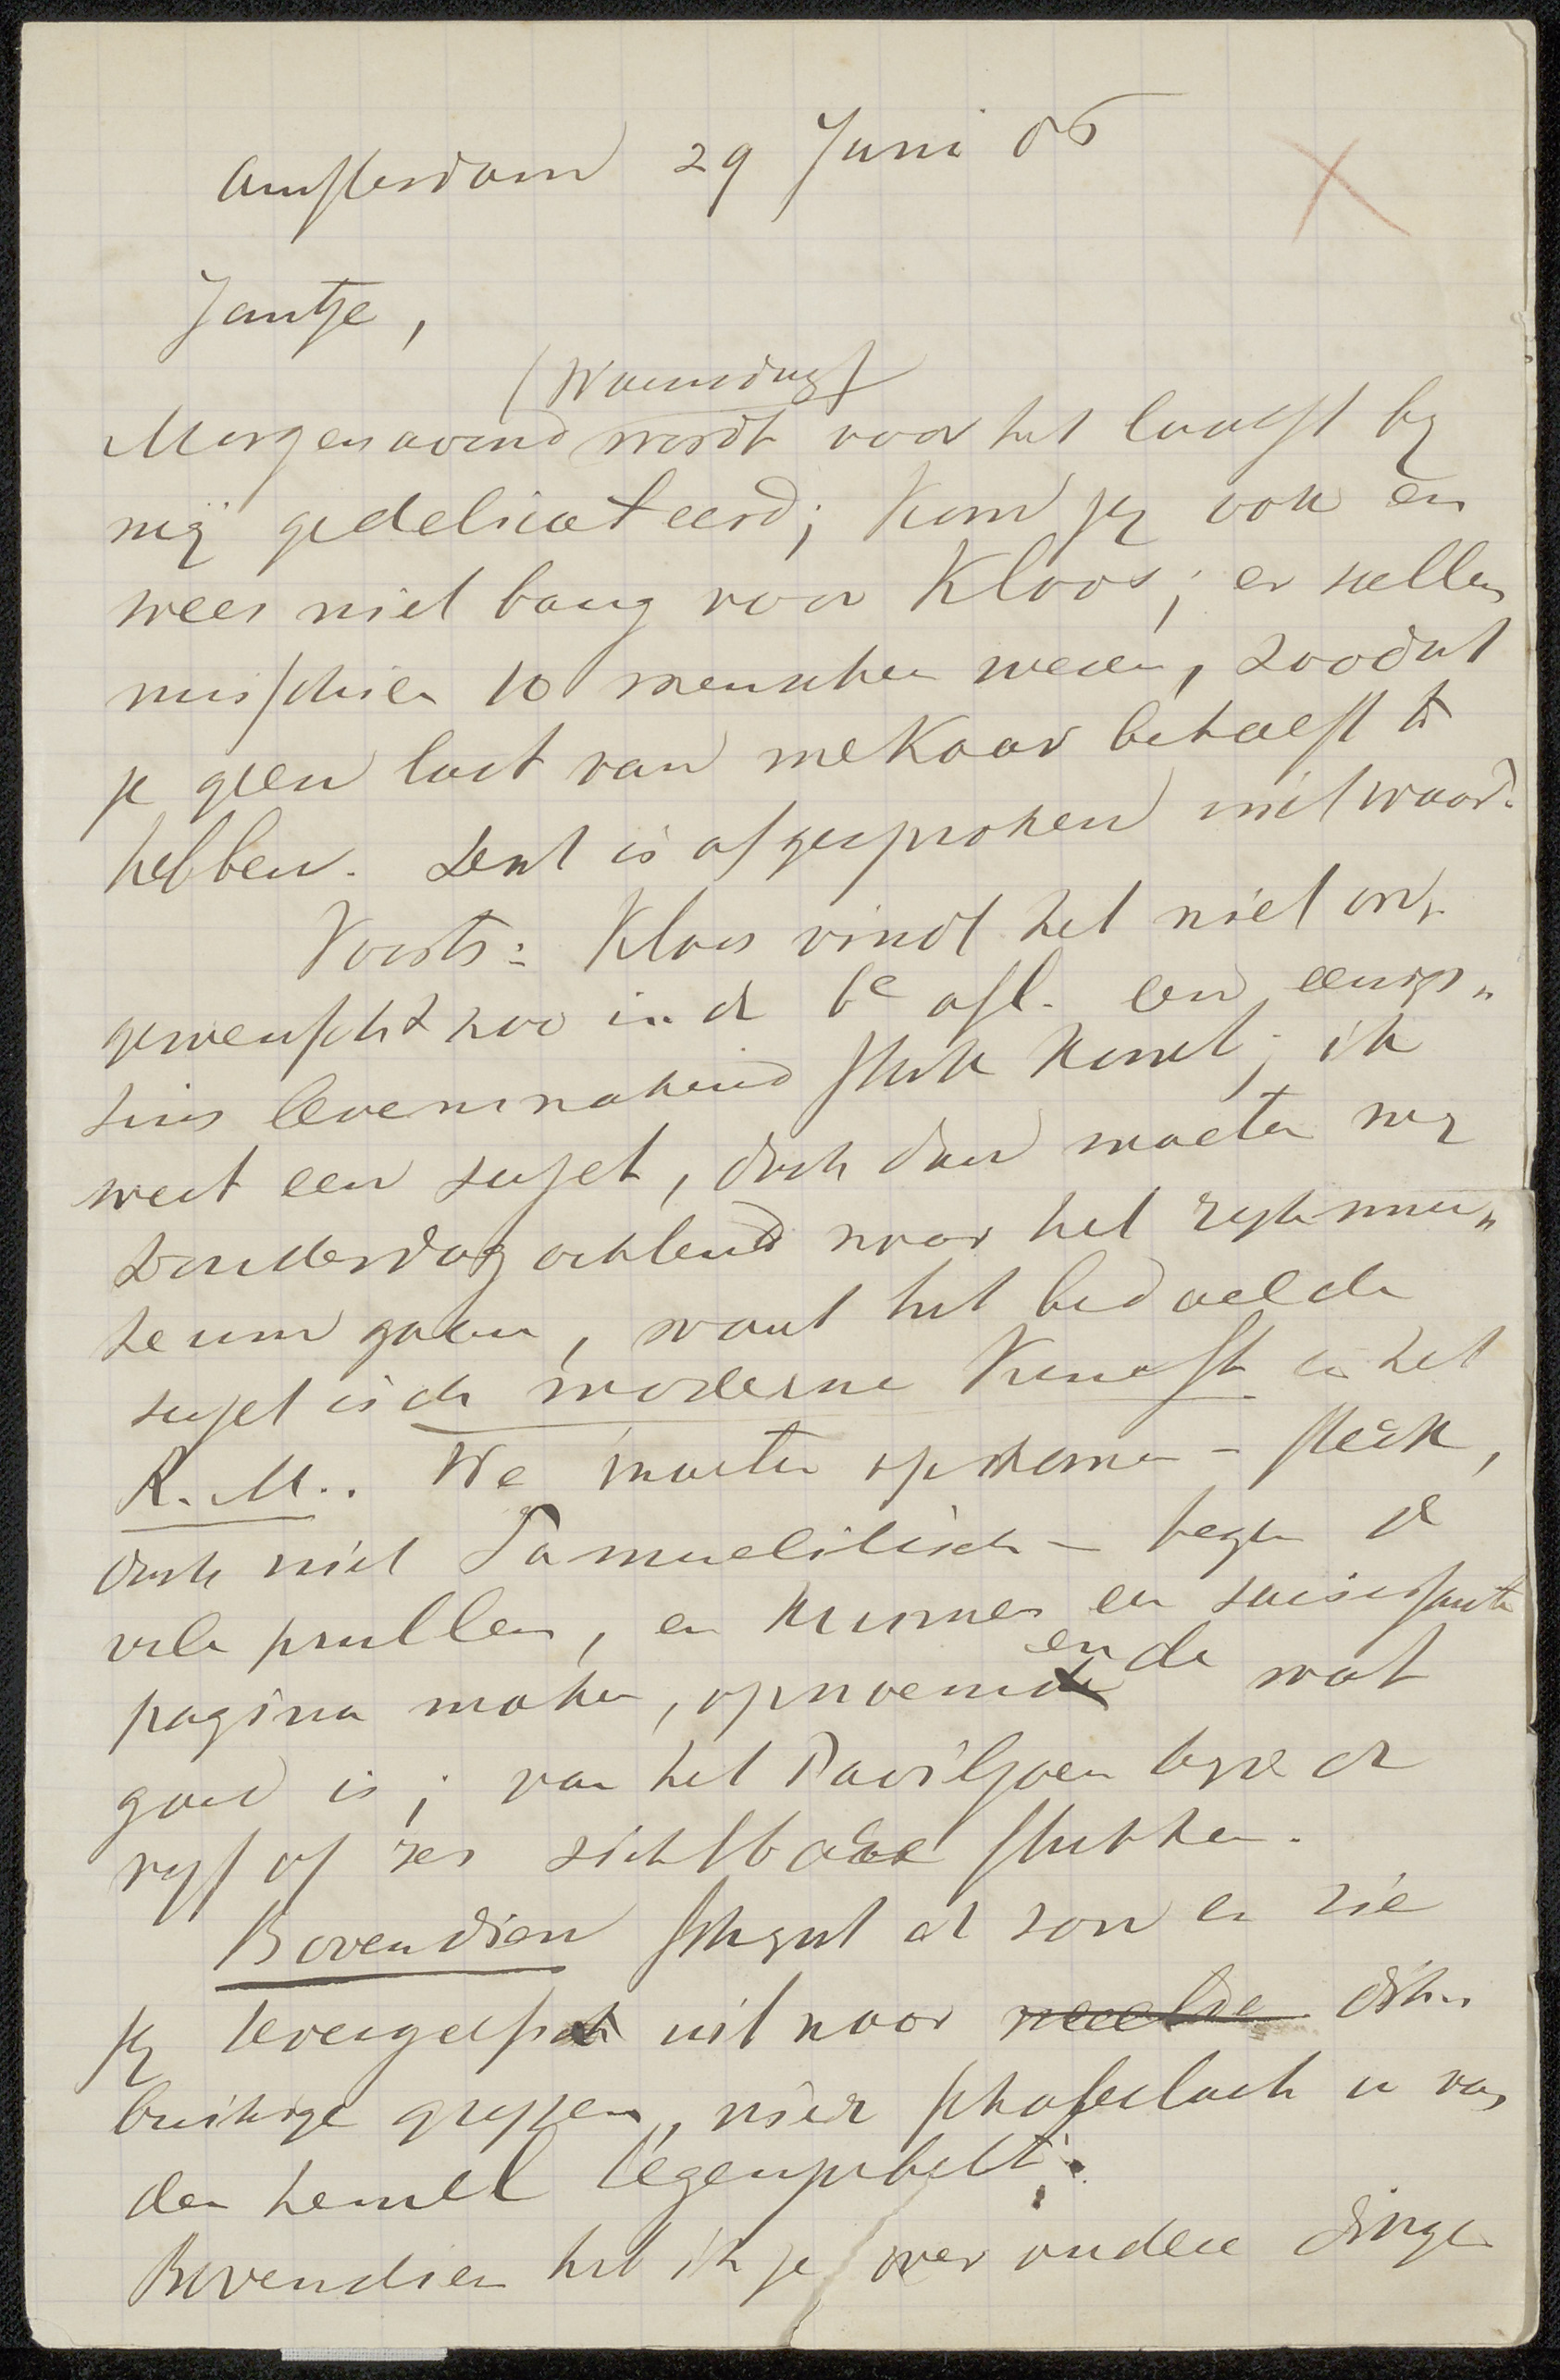 Amsterdam 29 Juni 86
Jantje,
(Woensdag)
Morgenavond wordt voor het laatst by
mij gedelicateerd; Kom jy ook en
wees niet bang voor Kloos; er zullen
misschien 10 menschen wezen, zoodat
je geen last van mekaar behoeft te
hebben. Zent is afgesproken
Voorts: Kloos vindt het niet on-
gewenscht zoo in de 6e afl. een eenigs„
zins levenmakend stuk komt; ik
weet een sujet, doch dan moeten wy
Donderdagochtend naar het rijksmu„
seum gaan, want het bedoelde
sujet is de moderne Kunst in het
R.M.. We moeten opkomen – sterk,
doch niet Samuelitisch – tegen de
vele prullen, en kunnen een saisissante
pagina maken, opnoemende wat
goed is; van het Paviljoen bijv. de
vijf of zes zichtbare stukken.
Bovendien schynt de zon en zie
jy uit naar dik
buikige gryzen, wier schaterlach u van
den hemel tegenschelt.
Bovendien heb ik je over andere dingen